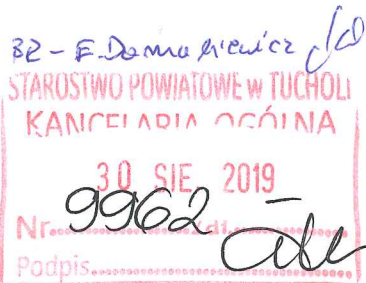 BZ - E. Domachiewicz
STAROSTWO POWIATOWE w TUCHOLI
KANCELARIA OGÓLNA
30 SIE 2019
Nr 9962 zał.
Podpis